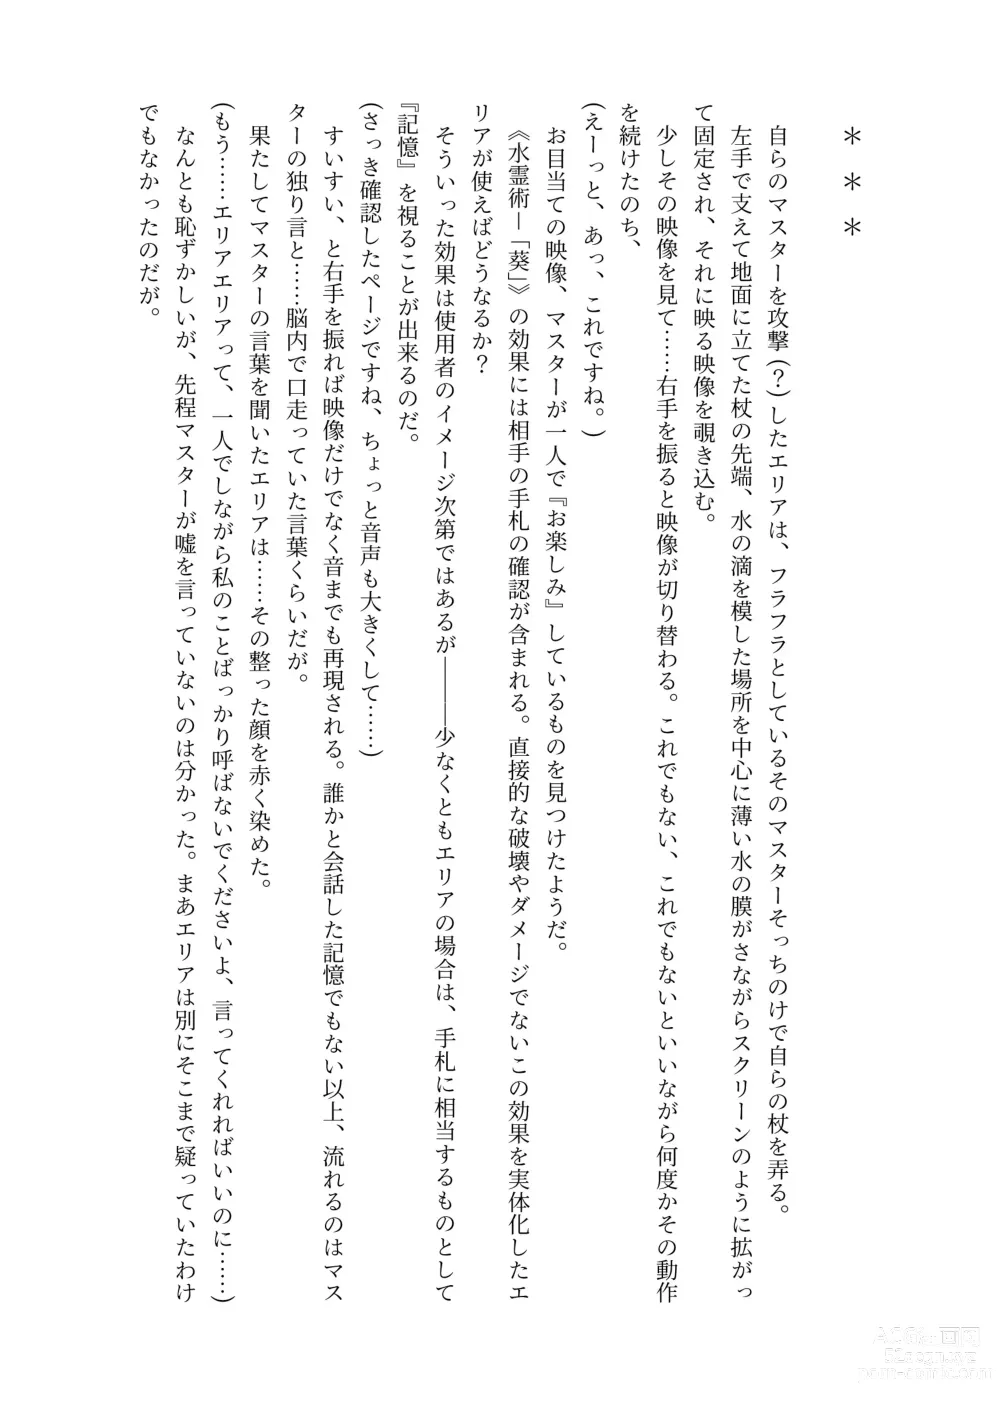 ＊　＊　＊
自らのマスターを攻撃(？)したエリアは、フラフラとしているそのマスターそっちのけで自らの杖を弄る。
左手で支えて地面に立てた杖の先端、水の滴を模した場所を中心に薄い水の膜がさながらスクリーンのように拡がっ
て固定され、それに映る映像を覗き込む。
少しその映像を見て……右手を振ると映像が切り替わる。これでもない、これでもないといいながら何度かその動作
を続けたのち、
(えーっと、あっ、これですね。)
お目当ての映像、マスターが一人で『お楽しみ』しているものを見つけたようだ。
《水霊術―「葵」》の効果には相手の手札の確認が含まれる。直接的な破壊やダメージでないこの効果を実体化したエ
リアが使えばどうなるか？
そういった効果は使用者のイメージ次第ではあるが―――少なくともエリアの場合は、手札に相当するものとして
『記憶』を視ることが出来るのだ。
(さっき確認したページですね、ちょっと音声も大きくして……)
すいすい、と右手を振れば映像だけでなく音までも再現される。誰かと会話した記憶でもない以上、流れるのはマス
ターの独り言と……脳内で口走っていた言葉くらいだが。
果たしてマスターの言葉を聞いたエリアは……その整った顔を赤く染めた。
(もう……エリアエリアって、一人でしながら私のことばっかり呼ばないでくださいよ、言ってくれればいいのに……)
なんとも恥ずかしいが、先程マスターが嘘を言っていないのは分かった。まあエリアは別にそこまで疑っていたわけ
でもなかったのだが。